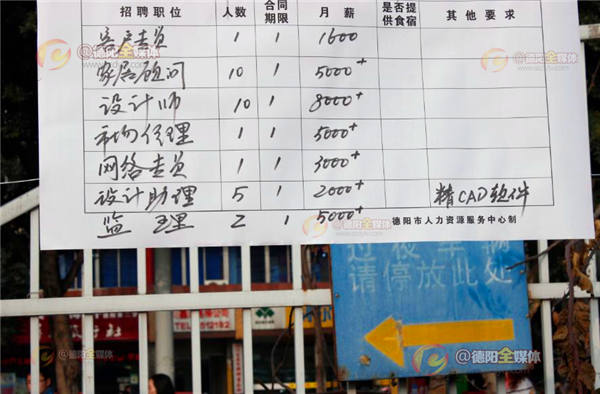 招聘职位 人数 合同期限 月薪 是否提供食宿 其他要求
客服专员 1 1 1600
家居顾问 10 1 5000+
设计师 10 1 8000+
市场经理 1 1 5000+
网络专员 1 1 3000+
设计助理 5 1 2000+ 精CAD软件
监理 2 1 5000+
德阳市人力资源服务中心制
请停放此处
@德阳全媒体
@德阳全媒体
@德阳全媒体
@德阳全媒体
@德阳全媒体